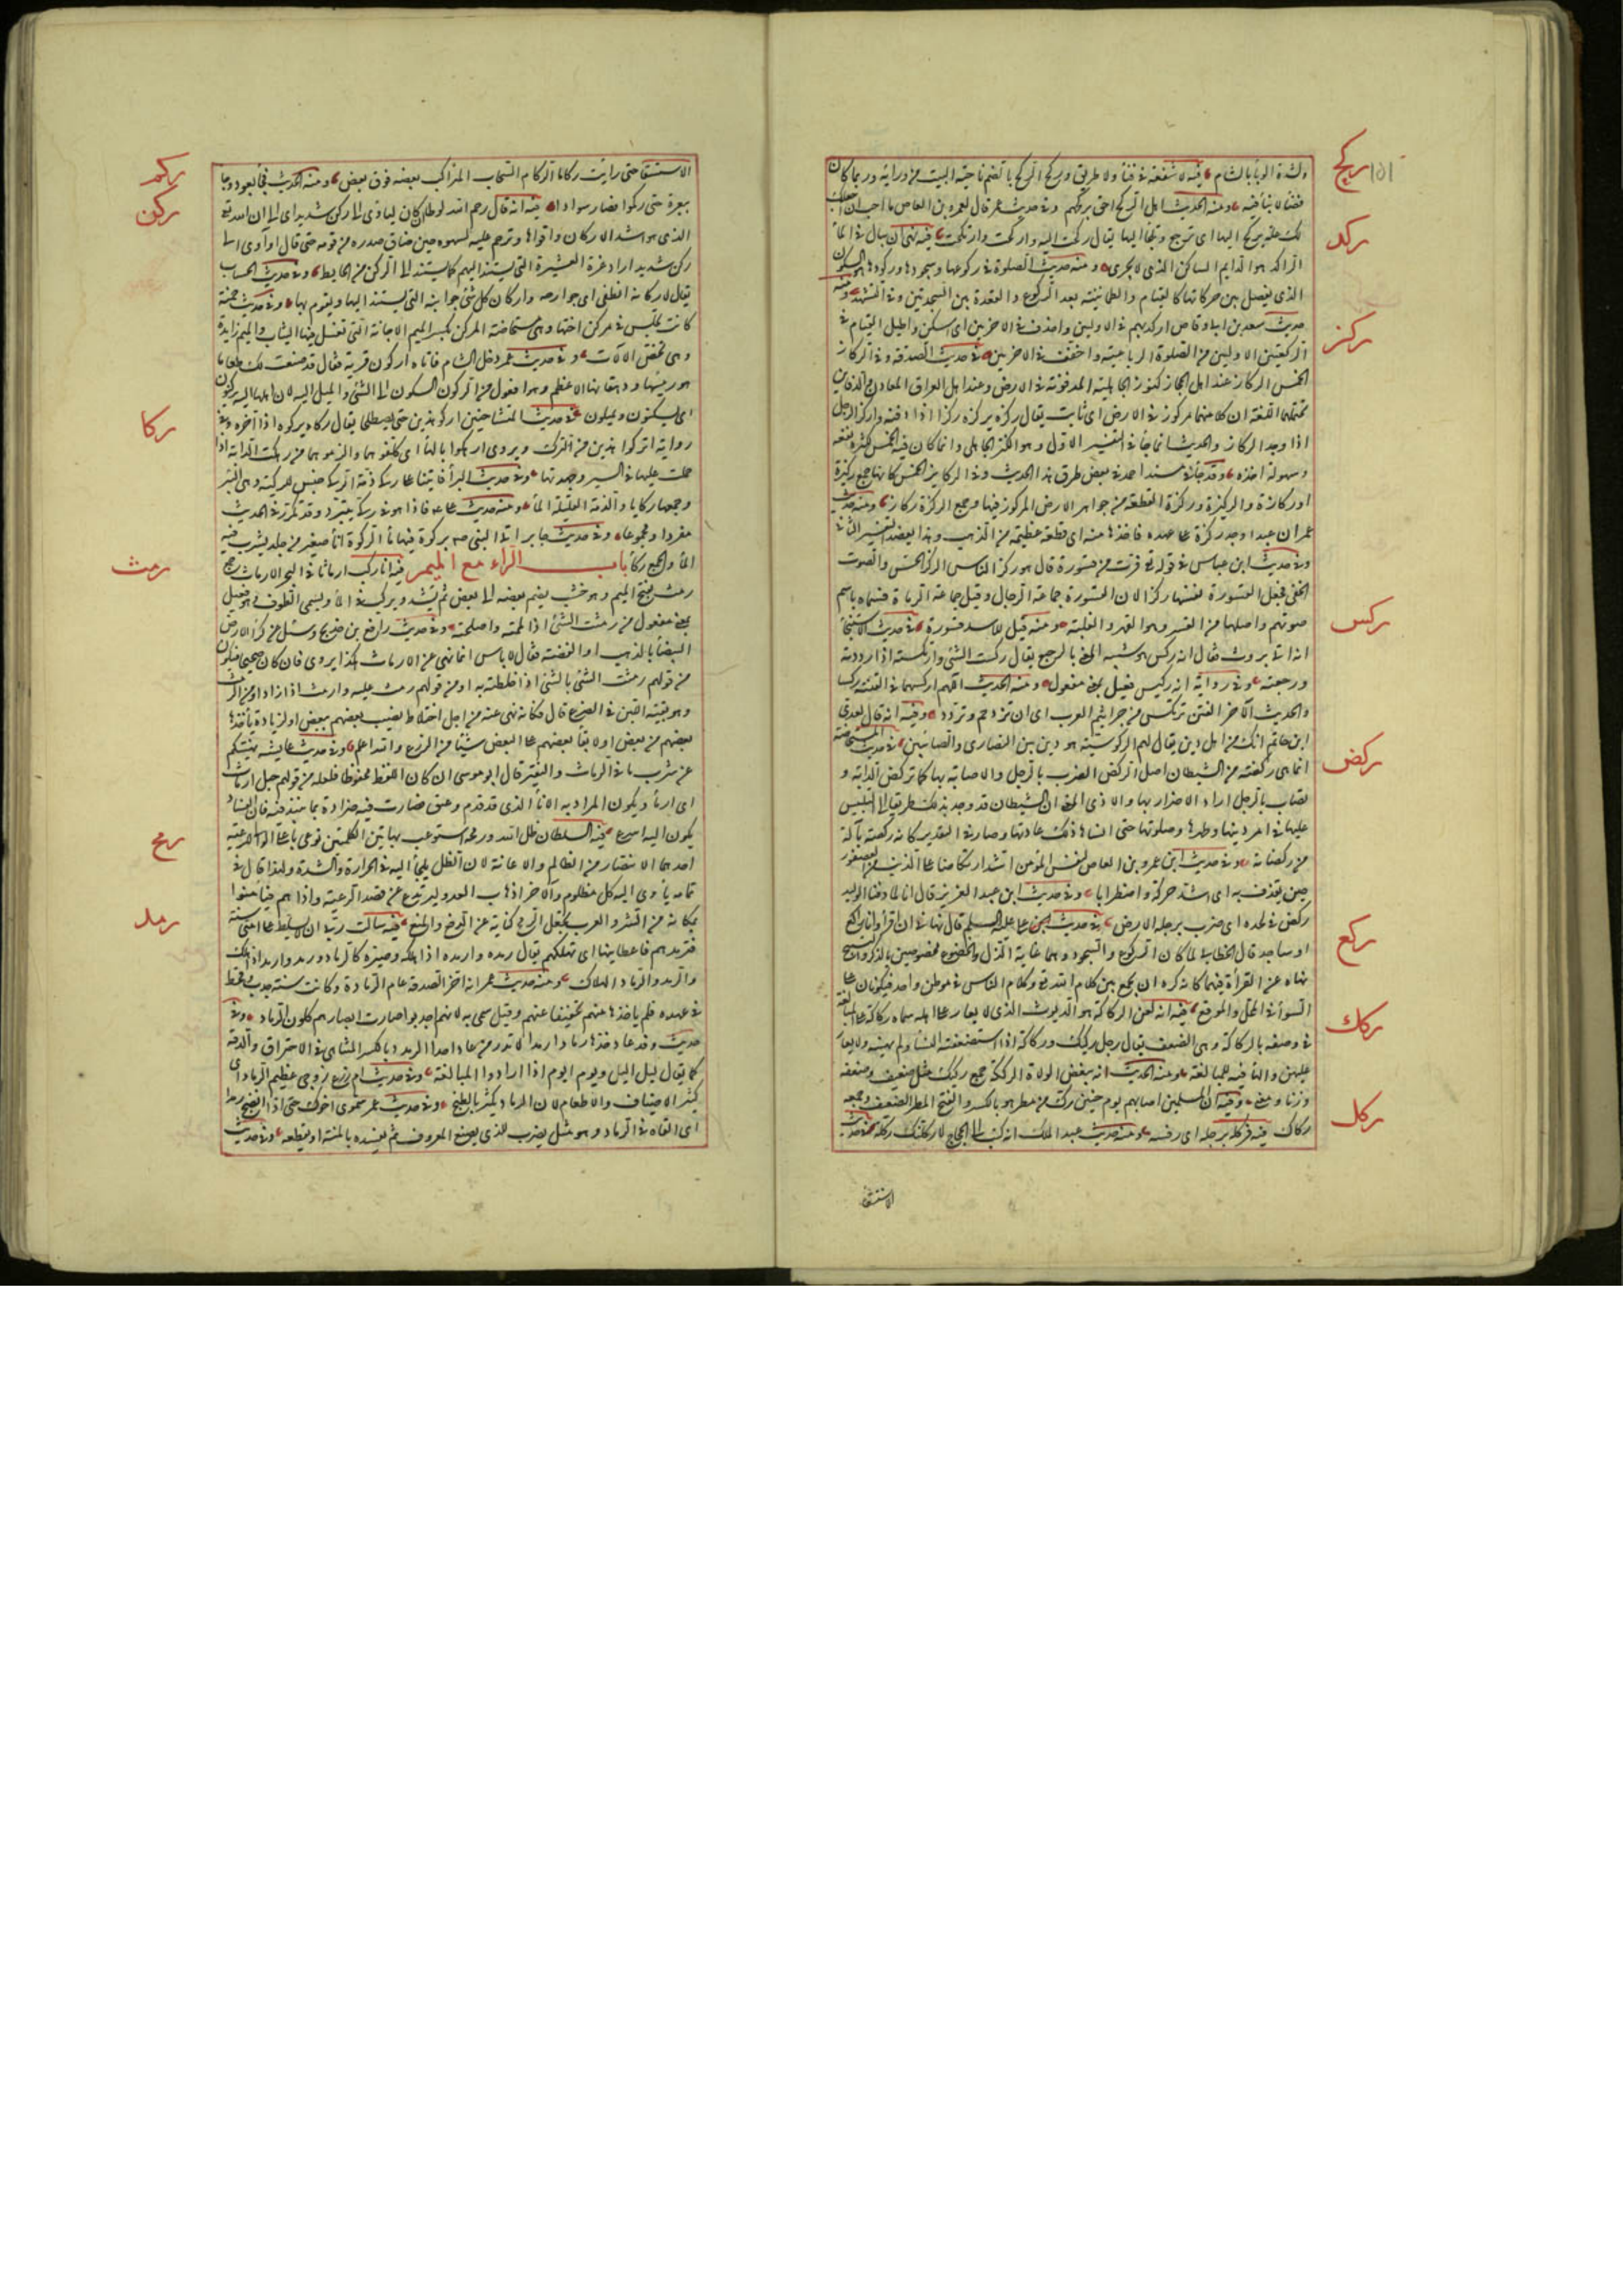 ١٥١
ركح
ولشدة الوبا بالشام فيه لا شفعة في فناء ولا طريق ولا ركح الركح بالضم ناحية البيت من ورائه وربما كان
فضاء لا بناء فيه ومنه الحديث اهل الركح احق بركحهم وفي حديث عمر قال لعمرو بن العاص ما احب ان اجعل
لك علة تركح اليها اي ترجع وتلجأ اليها يقال ركحت اليه واركحت وارتكحت فيه نهى ان يبال في الماء
ركد
الراكد هو الدايم الساكن الذي لا يجري ومنه حديث الصلوة في ركوعها وسجودها وركودها هو السكون
الذي يفصل بين حركاتها كالقيام والطمانينة بعد الركوع والقعدة بين السجدتين وفي التشهد ومنه
حديث سعد بن ابي وقاص اركد بهم في الاوليين واحذف في الاخريين اي اسكن واطيل القيام في
ركز
الركعتين الاوليين من الصلوة الرباعية واخفف في الاخريين في حديث الصدقة وفي الركاز
الخمس الركاز عند اهل الحجاز كنوز الجاهلية المدفونة في الارض وعند اهل العراق المعادن والقولان
تحتملهما اللغة لان كلا منهما مركوز في الارض اي ثابت يقال ركزه يركزه ركزا اذا دفنه واركز الرجل
اذا وجد الركاز والحديث انما جاء في التفسير الاول وهو الكنز الجاهلي وانما كان فيه الخمس لكثرة نفعه
وسهولة اخذه وقد جاء في مسند احمد في بعض طرق هذا الحديث وفي الركايز الخمس كانها جمع ركيزة
او ركازة والركيزة والركزة القطعة من جواهر الارض المركوزة فيها وجمع الركزة ركاز ومنه حديث
عمر ان عبدا وجد ركزة على عهده فاخذها منه اي قطعة عظيمة من الذهب وهذا يعضد التفسير الثاني
وفي حديث ابن عباس في قوله تع فرت من قسورة قال هو ركز الناس الركز الحس والصوت
الخفي فجعل القسورة نفسها ركزا لان القسورة جماعة الرجال وقيل جماعة الرماة فسماهم باسم
صوتهم واصلها من القسر وهو القهر والغلبة ومنه قيل للاسد قسورة في حديث الاستنجاء
ركس
انه اتي بروث فقال انه ركس هو شبيه المعنى بالرجيع يقال ركست الشئ واركسته اذا رددته
ورجعته وفي رواية انه ركيس فعيل بمعنى مفعول ومنه الحديث اللهم اركسهما في الفتنة ركسا
والحديث الاخر الفتن ترتكس بين جراثيم العرب اي تزدحم وتردد وفيه انه قال لعدي
ابن حاتم انك من اهل دين يقال لهم الركوسية هو دين بين النصارى والصابئين في حديث المستحاضة
ركض
انما هي ركضة من الشيطان اصل الركض الضرب بالرجل والاصابة بها كما تركض الدابة و
تصاب بالرجل اراد الاضرار بها والاذى المعنى ان الشيطان قد وجد بذلك طريقا الى التلبيس
عليها في امر دينها وطهرها وصلوتها حتى انساها ذلك عادتها وصار في التقدير كانه ركضة بآلة
من ركضاته وفي حديث ابن عمرو بن العاص لنفس المؤمن اشد ارتكاضا على الذنب من العصفور
حين يغدف به اي اشد حركة واضطرابا وفي حديث ابن عبد العزيز قال انا لما دفنا الوليد
ركض في لحده اي ضرب برجله الارض في حديث علي قال نهاني ان اقرأ وانا راكع
ركع
او ساجد قال الخطابي لما كان الركوع والسجود وهما غاية الذل والخضوع مخصوصين بالذكر والتسبيح
نهاه عن القراءة فيهما كانه كره ان يجمع بين كلام الله تع وكلام الناس في موطن واحد فيكونان على
السواء في المحل والموقع فيه انه لعن الركاكة هو الديوث الذي لا يغار على اهله سماه ركاكة على المبالغة
ركك
في وصفه بالركاكة وهي الضعف يقال رجل ركيك وركاكة اذا استضعفته النساء ولم يهبنه ولا يغار
عليهن والهاء فيه للمبالغة ومنه الحديث انه يبغض الولاة الركككة جمع ركيك مثل ضعيف وضعفة
وزنا ومعنى وفيه ان المسلمين اصابهم يوم حنين رك من مطر هو بالكسر والفتح المطر الضعيف وجمعه
ركل
ركاك فيه فركله برجله اي رفسه ومنه حديث عبد الملك انه كتب الى الحجاج لاركلنك ركلة في حديث
الاستسقاء
ركم
الاستسقاء حتى رايت ركاما الركام السحاب المتراكب بعضه فوق بعض ومنه الحديث فجاء بعود وجا
ركن
ببعرة حتى ركموا فصار سوادا فيه انه قال رحم الله لوطا ان كان لياوي الى ركن شديد اي الى الله تع
الذي هو اشد الاركان واقواها وترحم عليه لسهوه حين ضاق صدره من قومه حتى قال او آوي الى
ركن شديد اراد عزة العشيرة التي يستند اليهم كما يستند الى الركن من الحايط وفي حديث الحساب
يقال لاركانه انطقي اي جوارحه واركان كل شئ جوانبه التي يستند اليها ويقوم بها وفي حديث حمنة
كانت تجلس في مركن اختها وهي مستحاضة المركن بكسر الميم الاجانة التي تغسل فيها الثياب والميم زايدة
وهي تخص الآلات وفي حديث عمر دخل الشام فاتاه اركون قرية فقال قد صنعت لك طعاما
هو رئيسها ودهقانها الاعظم وهو افعول من الركون السكون الى الشئ والميل اليه لان اهلها اليه يركنون
اي يسكنون ويميلون في حديث المتشاحنين اركوا هذين حتى يصطلحا يقال ركاه يركوه اذا اخره وفي
ركا
رواية اتركوا هذين من الترك ويروى ارهكوا بالهاء اي كلفوهما والزموهما من رهكت الدابة اذا
حملت عليها في السير وجهدتها وفي حديث البراء فاتينا على ركي ذمة الركي جنس للركية وهي البئر
وجمعها ركايا والذمة القليلة الماء ومنه حديث علي فاذا هو في ركي يتبرد وقد تكرر في الحديث
مفردا ومجموعا وفي حديث جابر اتى النبي صه بركوة فيها ماء الركوة اناء صغير من جلد يشرب فيه
الماء والجمع ركاء باب الراء مع الميم فيه انا نركب ارماثا في البحر الارماث جمع
رمث
رمث بفتح الميم وهو خشب يضم بعضه الى بعض ثم يشد ويركب في الماء ويسمى الطوف وهو فعل
بمعنى مفعول من رمثت الشئ اذا لممته واصلحته وفي حديث رافع بن خديج وسئل عن كراء الارض
البيضاء بالذهب والفضة فقال لا باس انما نهي عن الارماث هكذا يروى فان كان صحيحا فيكون
من قولهم رمثت الشئ بالشئ اذا خلطته به او من قولهم رمث عليه وارمث اذا زاد او من الرمث
وهو بقية اللبن في الضرع قال فكانه نهى عنه من اجل اختلاط نصيب بعضهم ببعض او لزيادة ياخذها
بعضهم من بعض او لابقاء بعضهم على البعض شيئا من الزرع والله اعلم وفي حديث عايشة نهيتكم
عن شرب ما في الرماث والنقير قال ابو موسى ان كان اللفظ محفوظا فلعله من قولهم حبل ارماث
اي ارمام ويكون المراد به الاناء الذي قد قدم وعتق فصارت فيه ضراوة بما ينبذ فيه فان الفساد
يكون اليه اسرع فيه السلطان ظل الله ورمحه استوعب بهاتين الكلمتين نوعي ما على الوالي للرعية
رمح
احدهما الانتصار من الظالم والاعانة لان الظل يلجأ اليه في الحرارة والشدة ولهذا قال في
تمامه يأوي اليه كل مظلوم والآخر ارهاب العدو ليرتدع عن قصد الرعية واذاهم فيامنوا
بمكانه من الشر والعرب تجعل الرمح كناية عن الدفع والمنع فيه سالت ربي ان لا يسلط على امتي سنة
رمد
فترمدهم فاعطانيها اي تهلكهم يقال رمده وارمده اذا اهلكه وصيره كالرماد ورمد وارمد اذا هلك
والرمد والرمادة الهلاك ومنه حديث عمر انه اخر الصدقة عام الرمادة وكانت سنة جدب وقحط
في عهده فلم ياخذها منهم تخفيفا عنهم وقيل سمي به لانهم اجدبوا صارت الوانهم كلون الرماد وفي
حديث وفد عاد خذها رمادا رمددا لا تذر من عاد احدا الرمدد بالكسر المتناهي في الاحتراق والدقة
كما يقال ليل اليل ويوم ايوم اذا ارادوا المبالغة وفي حديث ام زرع زوجي عظيم الرماد اي
كثير الاضياف والاطعام لان الرماد يكثر بالطبخ وفي حديث عمر شوى اخوك حتى اذا انضج رمد
اي القاه في الرماد وهو مثل يضرب للذي يصنع المعروف ثم يفسده بالمنة او يقطعه وفي حديث